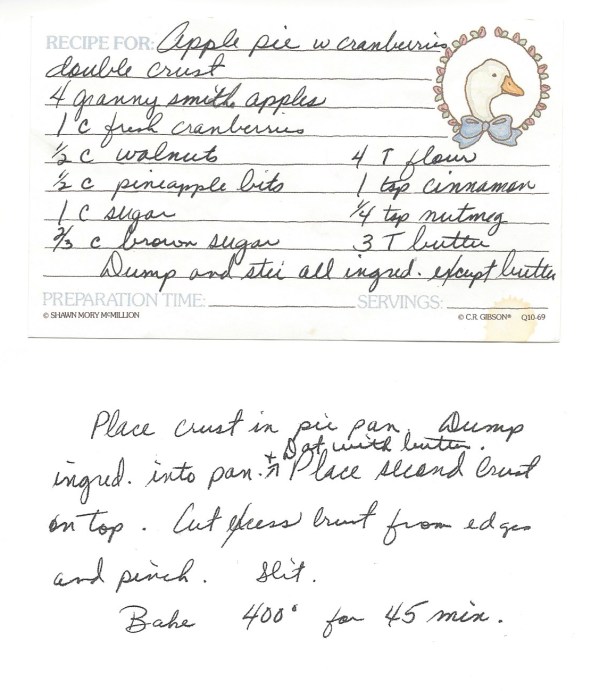 RECIPE FOR: Apple pie w cranberries
double crust
4 granny smith apples
1 c fresh cranberries
½ c walnuts 4 T flour
½ c pineapple bits 1 tsp cinnamon
1 c sugar ¼ tsp nutmeg
⅔ c brown sugar 3 T butter
Dump and stir all ingred. except butter
PREPARATION TIME: SERVINGS:
© SHAWN MORY McMILLION © C.R. GIBSON® Q10-69
Place crust in pie pan. Dump
+ Dot with butter.
ingred. into pan. Place second crust
on top. Cut excess crust from edges
and pinch. Slit.
Bake 400° for 45 min.